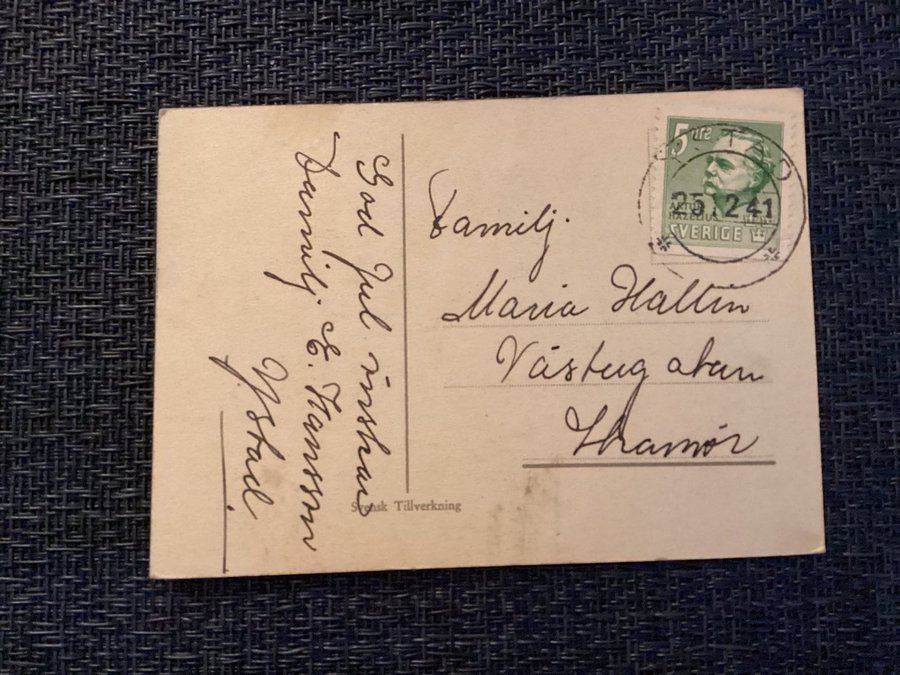 God Jul önskas
Familj E. Hansson
Ystad.
Familj.
Maria Hallin
Skanör
5 öre
YSTAD
23 12 41
HAZELIUS
SVERIGE
Svensk Tillverkning